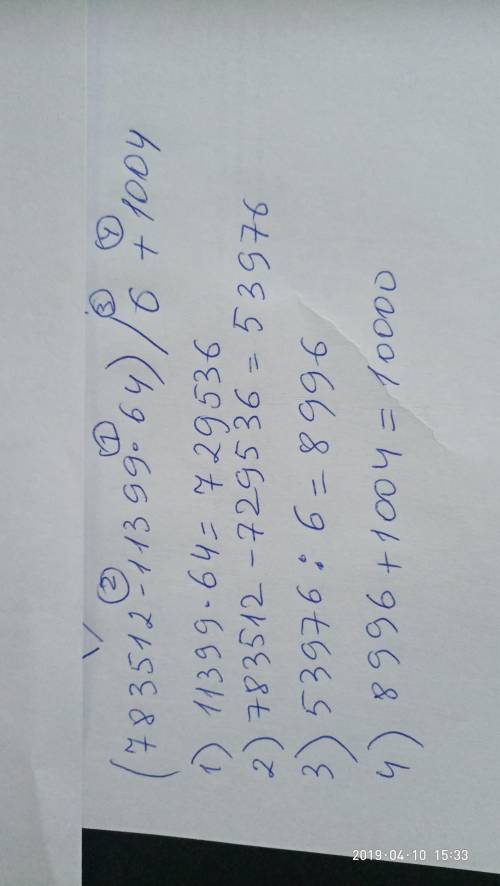 ② ① ③ ④
(783512-11399·64)/6 +1004
1) 11399·64=729536
2) 783512-729536=53976
3) 53976:6=8996
4) 8996+1004=10000
2019-04-10 15:33